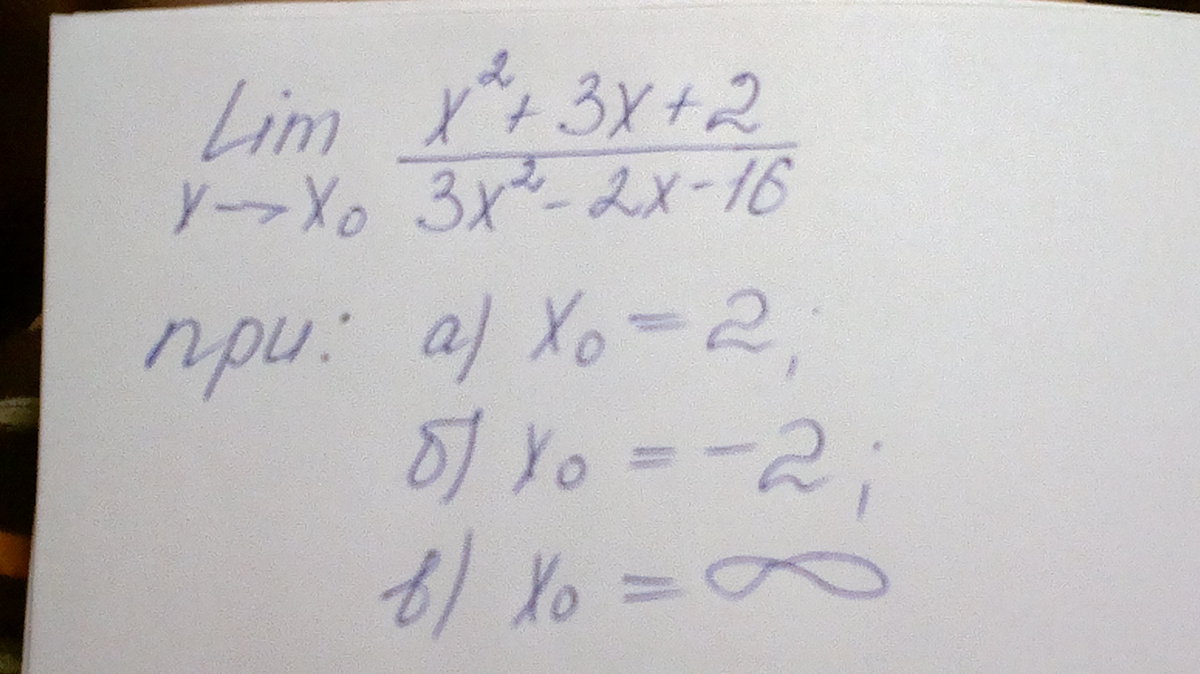 Lim x²+3x+2
x→x₀ 3x²-2x-16
при: а) x₀=2;
б) x₀=-2;
в) x₀=∞